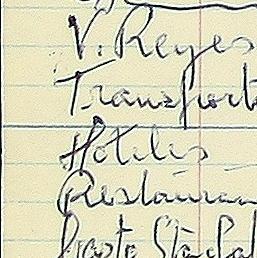 V. Reyes
Transport
Hoteles
Restauran
Gasto